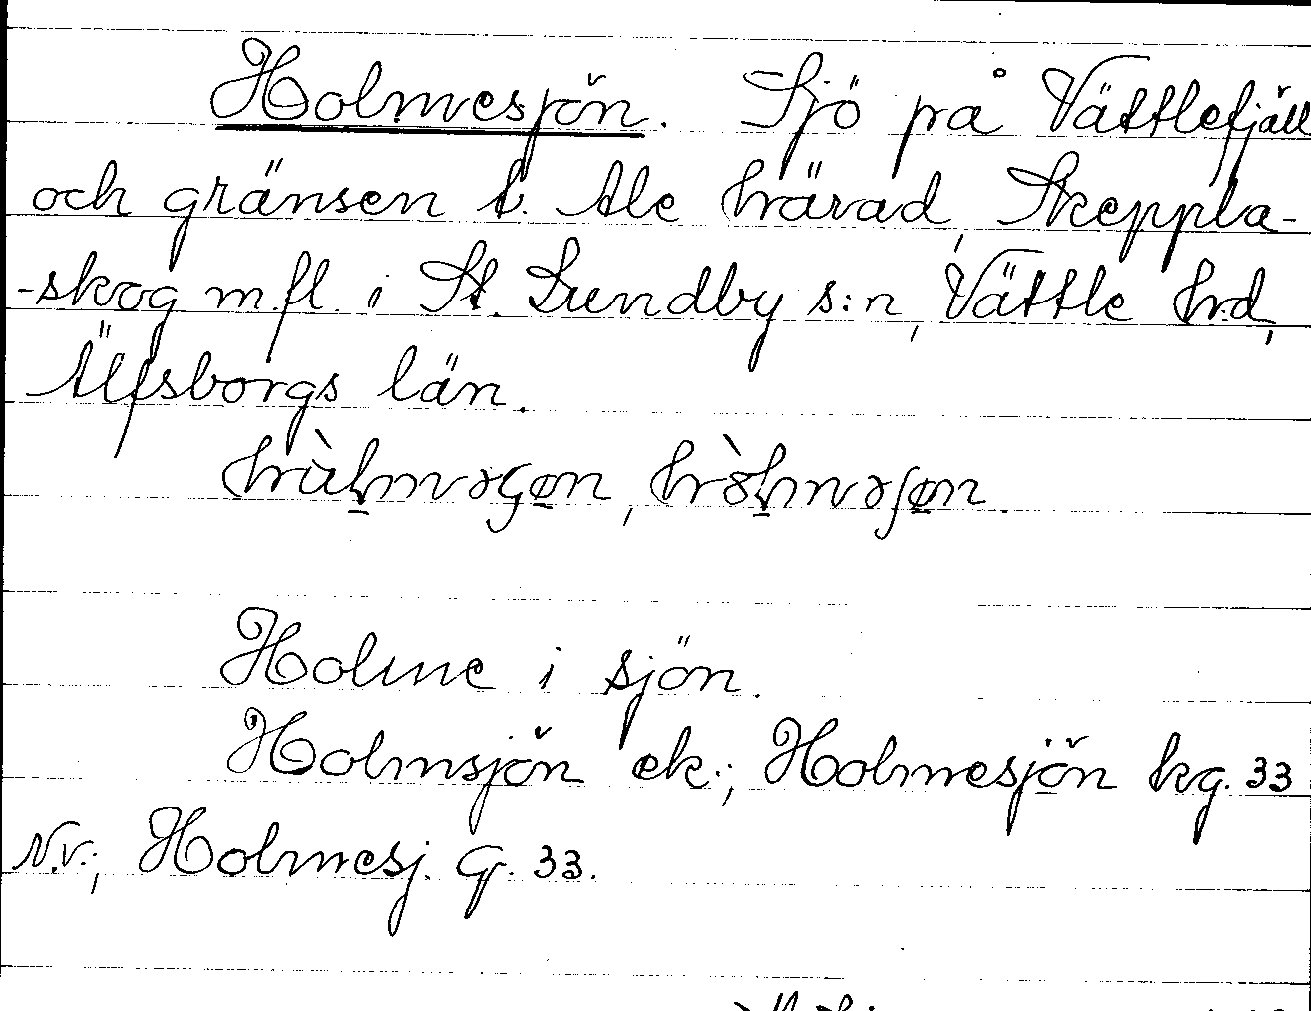 Holmesjön. Sjö på Vättlefjäll
och gränsen t. Ale härad, Skeppla-
-skog m.fl. i St. Lundby s:n, Vättle hd,
Älfsborgs län.
Holme i sjön.
Holmsjön ek.; Holmesjön kg. 33
N.V.; Holmesj. G. 33.